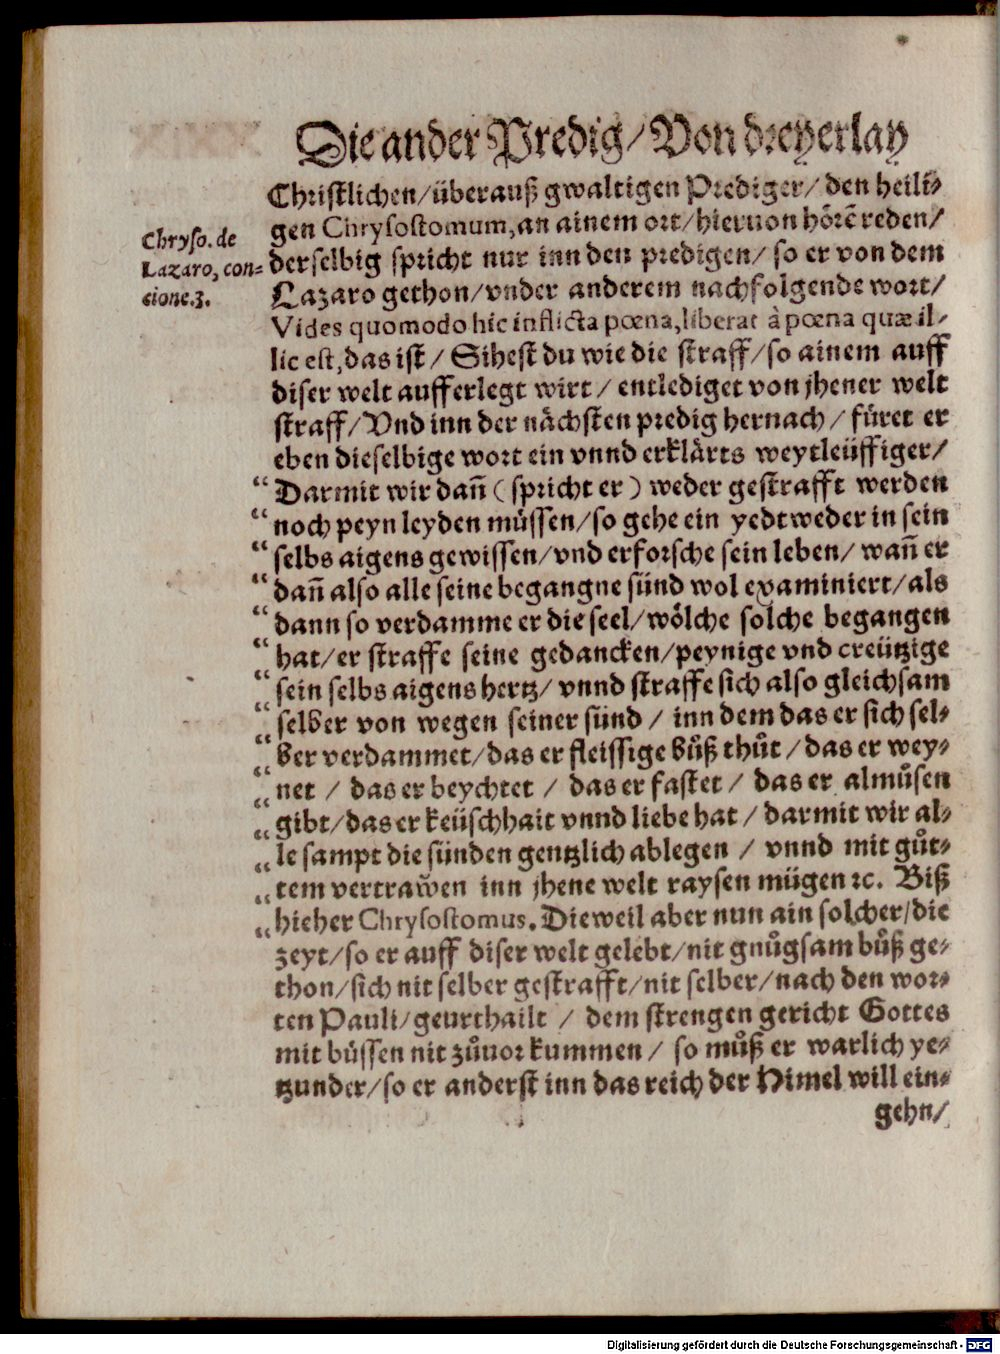 Die ander Predig/ Von dreyerlay
Christlichen/ überauß gwaltigen Prediger/ den heili-
gen Chrysostomum, an ainem ort/ hieruon hörẽ reden/
derselbig spricht nur inn den predigen/ so er von dem
Lazaro gethon/ vnder anderem nachfolgende wort/
Chryso. de
Lazaro, con-
cione.3.
Vides quomodo hîc inflicta pœna, liberat à pœna quæ il-
lic est, das ist/ Sihest du wie die straff/ so ainem auff
diser welt aufferlegt wirt/ entlediget von jhener welt
straff/ Vnd inn der nächsten predig hernach/ füret er
eben dieselbige wort ein vnnd erklärts weytleüffiger/
“ Darmit wir dañ (spricht er) weder gestrafft werden
“ noch peyn leyden müssen/ so gehe ein yedtweder in sein
“ selbs aigens gewissen/ vnd erforsche sein leben/ wañ er
“ dañ also alle seine begangne sünd wol examiniert/ als
“ dann so verdamme er die seel/ wölche solche begangen
“ hat/ er straffe seine gedancken/ peynige vnd creützige
“ sein selbs aigens hertz/ vnnd straffe sich also gleichsam
“ selber von wegen seiner sünd/ inn dem das er sich sel-
“ ber verdammet/ das er fleissige bůß thůt/ das er wey-
“ net/ das er beychtet/ das er fastet/ das er almůsen
“ gibt/ das er keüschhait vnnd liebe hat/ darmit wir al-
“ le sampt die sünden gentzlich ablegen/ vnnd mit gůt-
“ tem vertrawen inn jhene welt raysen mügen ꝛc. Biß
“ hieher Chrysostomus. Dieweil aber nun ain solcher/ die
zeyt/ so er auff diser welt gelebt/ nit gnůgsam bůß ge-
thon/ sich nit selber gestrafft/ nit selber/ nach den wor-
ten Pauli/ geurthailt/ dem strengen gericht Gottes
mit büssen nit zůuor kummen/ so můß er warlich ye-
tzunder/ so er anderst inn das reich der Himel will ein-
gehn/
Digitalisierung gefördert durch die Deutsche Forschungsgemeinschaft - DFG